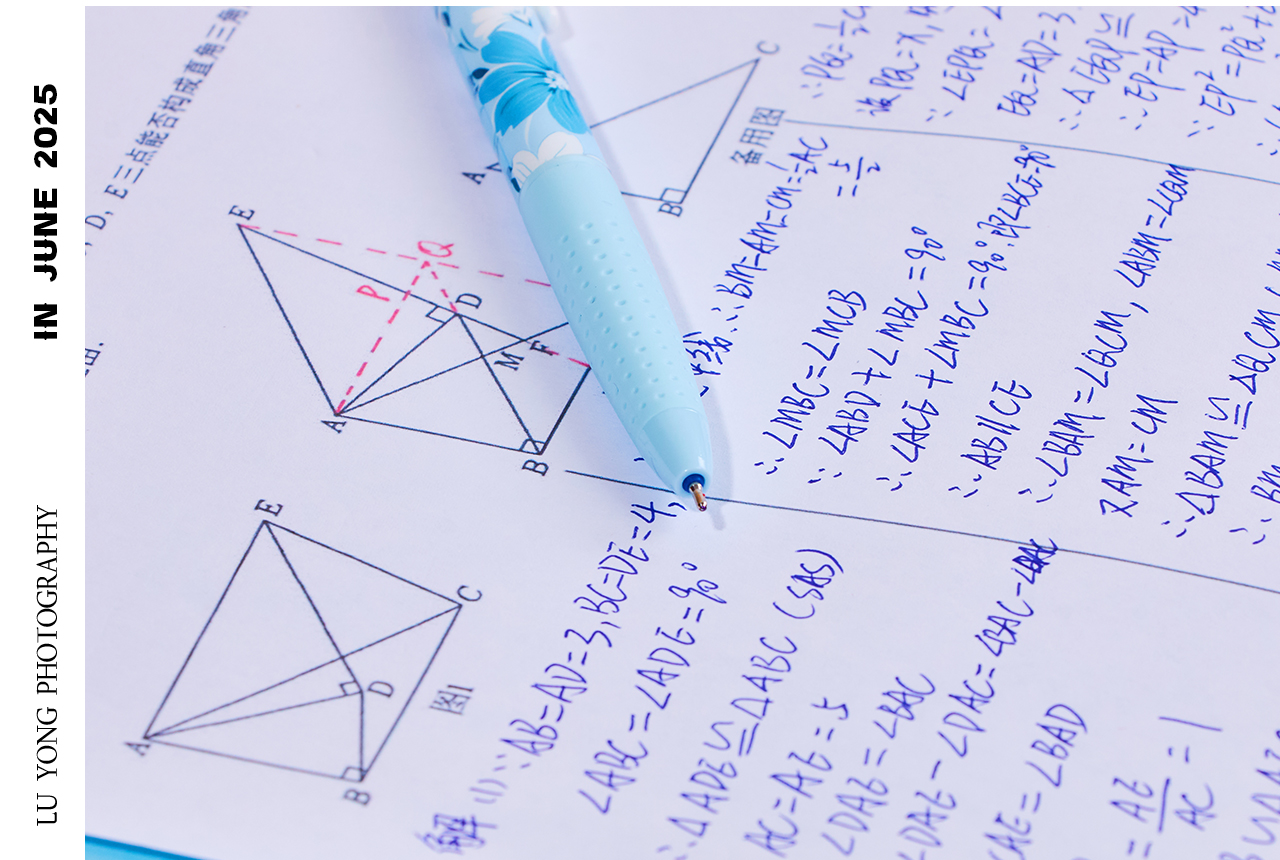 IN JUNE 2025
LU YONG PHOTOGRAPHY
D, E三点能否构成直角三角
E
Q
P
D
M
F
A
B
A
C
B
备用图
E
C
D
A
B
图1
∴PQ=½C
设PQ=x,
∵∠EPQ=∠
EQ=AD=3
∴△EQP≌
∴EP=AP=4
∵EP²=PQ²+
中线∴BM=AM=CM=½AC
=5/2
∴∠MBC=∠MCB
∵∠ABD+∠MBC=90°
∴∠ACE+∠MBC=90°∴即∠BCE=90°
∴AB∥CE
∴∠BAM=∠QCM,∠ABM=∠CQM
又AM=CM
∴△BAM≌△QCM
∴BM
解(1)∵AB=AD=3,BC=DE=4,
∠ABC=∠ADE=90°
∴△ADE≌△ABC(SAS)
AC=AE=5
∠DAE=∠BAC
∠DAE-∠DAC=∠BAC-∠DAC
CAE=∠BAD
=AE/AC=1